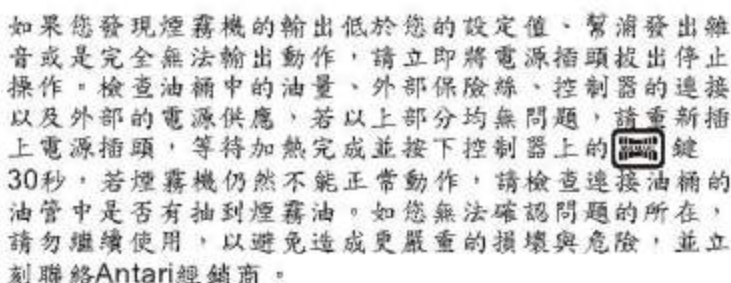 如果您發現煙霧機的輸出低於您的設定值、幫浦發出雜
音或是完全無法輸出動作，請立即將電源插頭拔出停止
操作。檢查油桶中的油量、外部保險絲、控制器的連接
以及外部的電源供應，若以上部分均無問題，請重新插
上電源插頭，等待加熱完成並按下控制器上的鍵
30秒，若煙霧機仍然不能正常動作，請檢查連接油桶的
油管中是否有抽到煙霧油。如您無法確認問題的所在，
請勿繼續使用，以避免造成更嚴重的損壞與危險，並立
刻聯絡Antari經銷商。